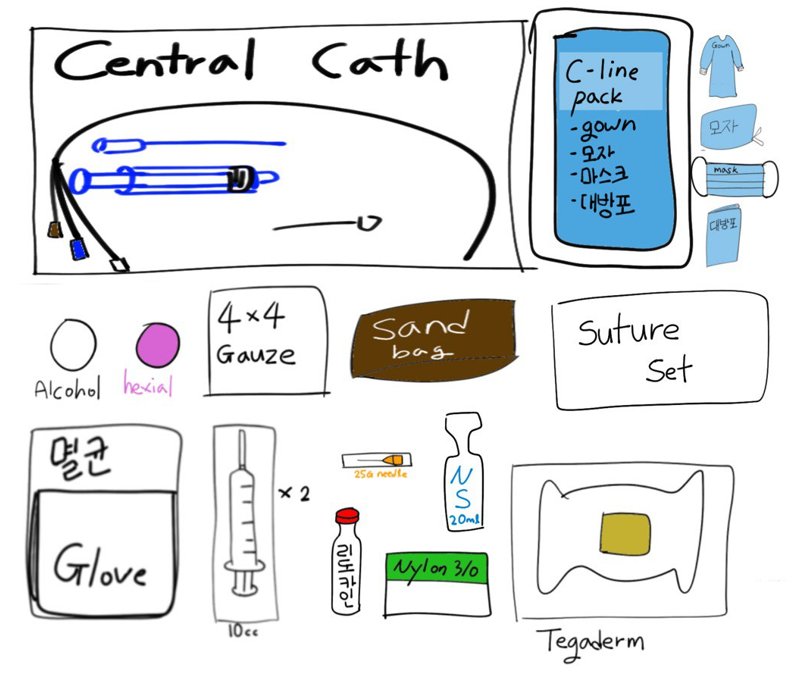 Central Cath
C-line
pack
- gown
- 모자
- 마스크
- 대방포
Gown
모자
mask
대방포
Alcohol
hexial
4×4
Gauze
Sand
bag
Suture
Set
멸균
Glove
×2
10cc
25G needle
리도카인
NS
20ml
Nylon 3/0
Tegaderm